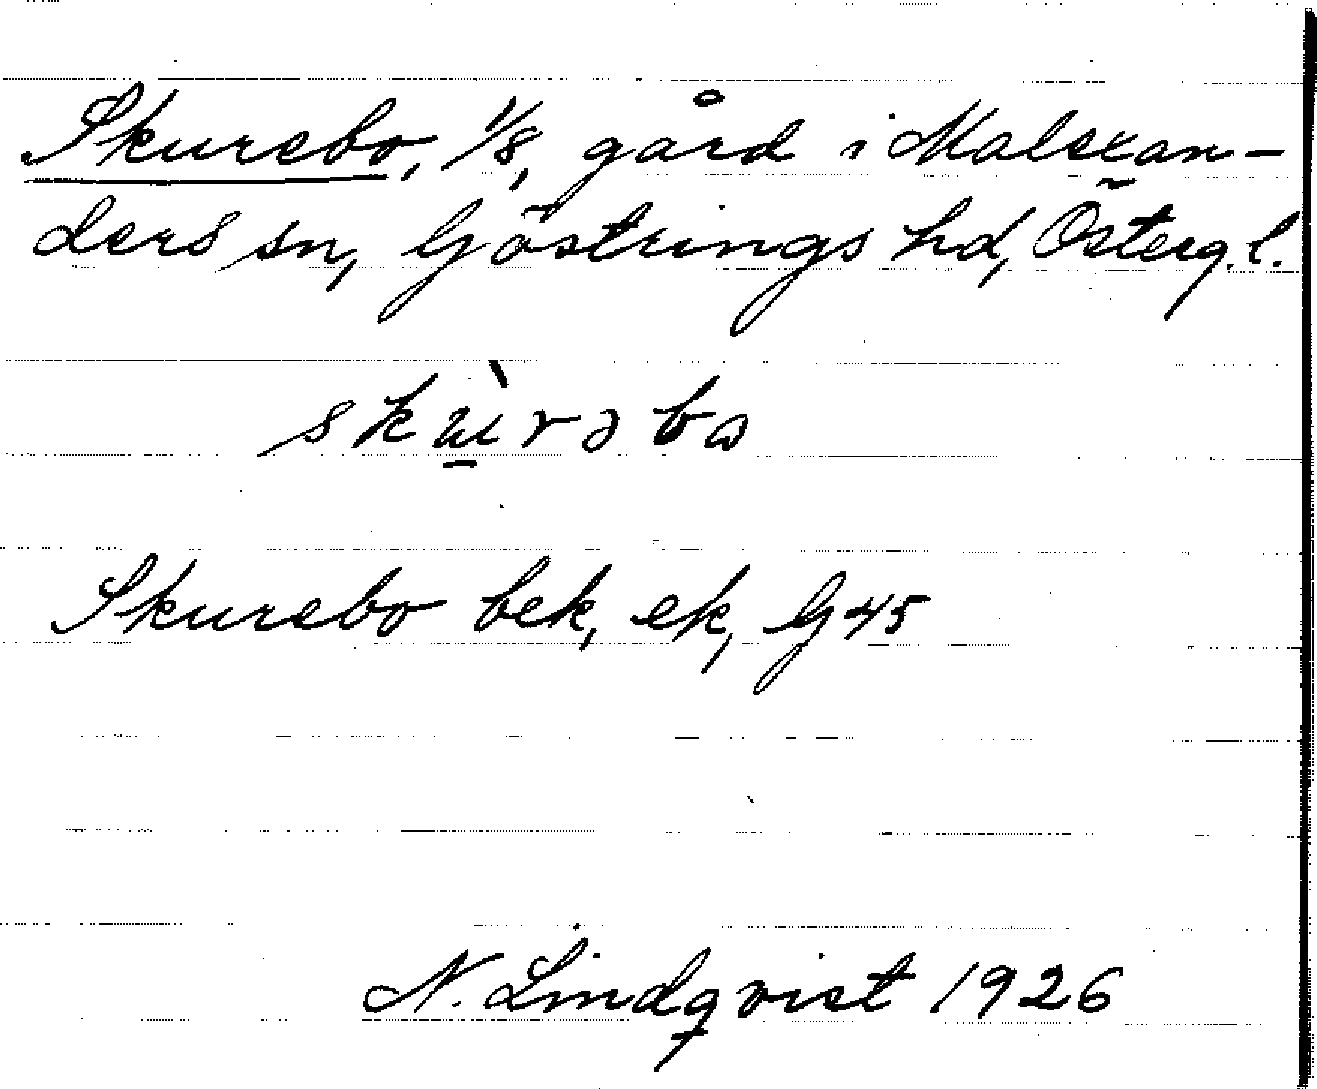 Skurebo, 1/8, gård i Malexan-
ders sn, Göstrings hd, Österg. l.
skɯ̠̀rəbɷ
Skurebo bek, ek, G 45
N. Lindqvist 1926